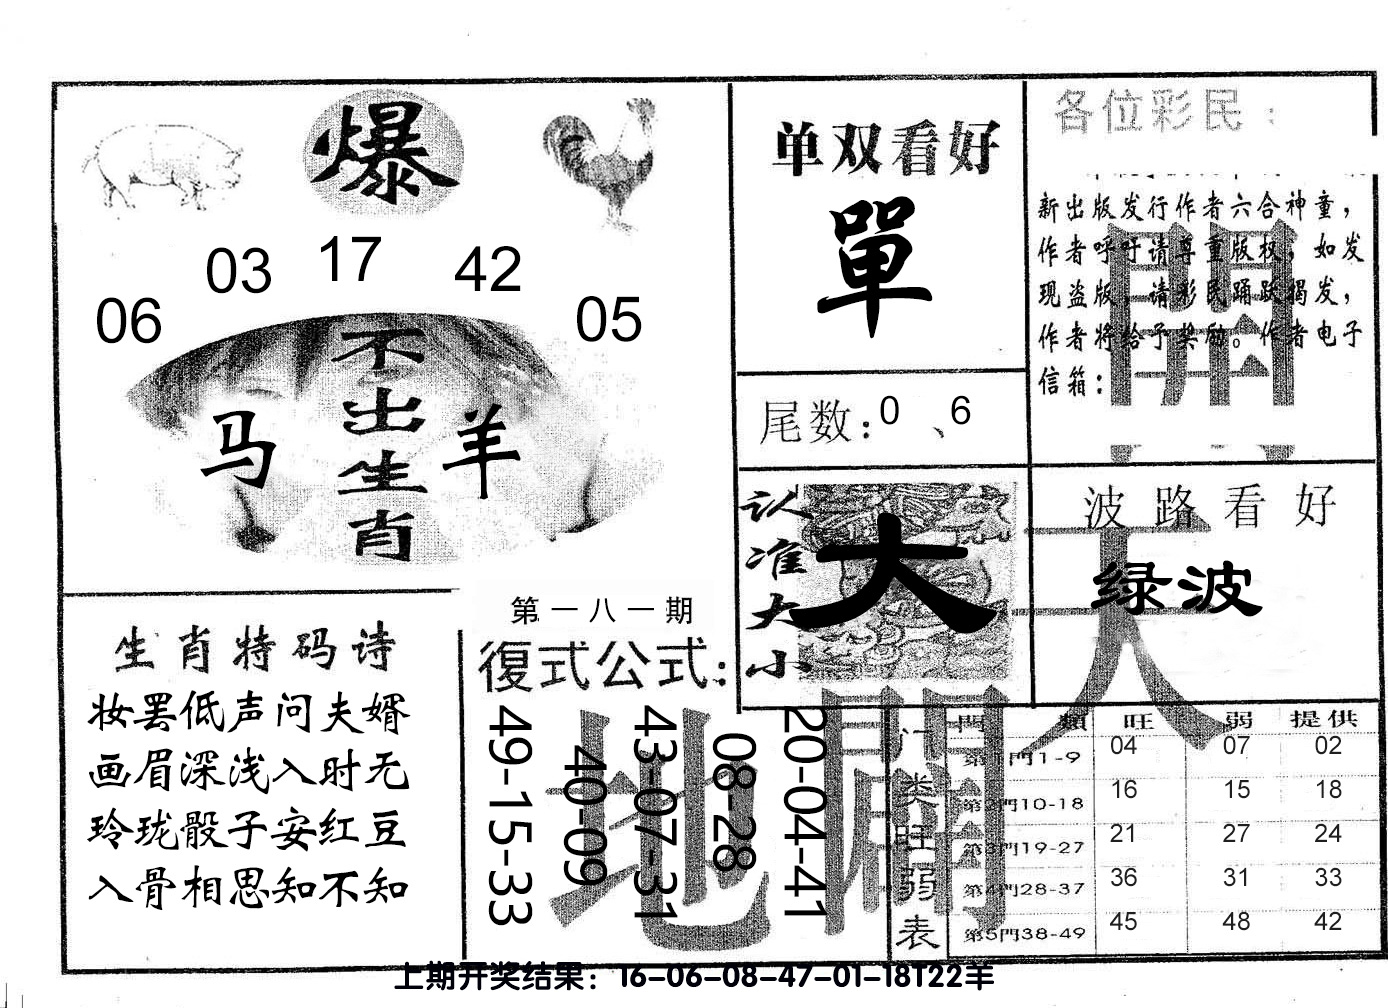 爆
03 17 42
06 05
不出生肖
马 羊
单双看好
單
尾数：0、6
各位彩民：
新出版发行作者六合神童，
作者呼吁请尊重版权，如发
现盗版，请彩民踊跃揭发，
作者将给予奖励。作者电子
信箱：
開
认准大小
大
波路看好
绿波
天
生肖特码诗
妆罢低声问夫婿
画眉深浅入时无
玲珑骰子安红豆
入骨相思知不知
第一八一期
復式公式：
49-15-33
40-09
43-07-31
08-28
20-04-41
地
門类旺弱表
門類 旺 弱 提供
第1門1-9 04 07 02
第2門10-18 16 15 18
第3門19-27 21 27 24
第4門28-37 36 31 33
第5門38-49 45 48 42
上期开奖结果：16-06-08-47-01-18T22羊